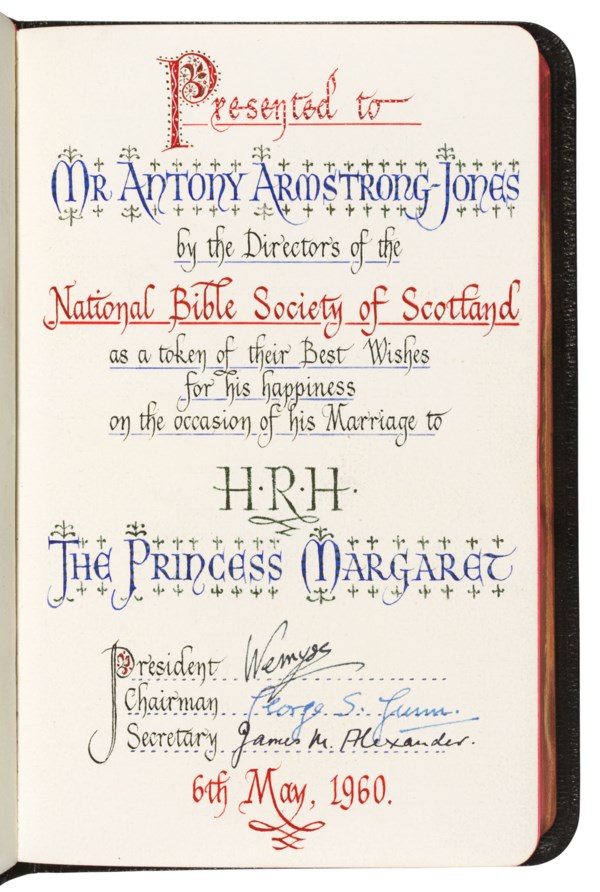 Presented to
Mr Antony Armstrong-Jones
by the Directors of the
National Bible Society of Scotland
as a token of their Best Wishes
for his happiness
on the occasion of his Marriage to
H·R·H·
The Princess Margaret
President Wemyss
Chairman George S. Gunn.
Secretary James M. Alexander.
6th May, 1960.